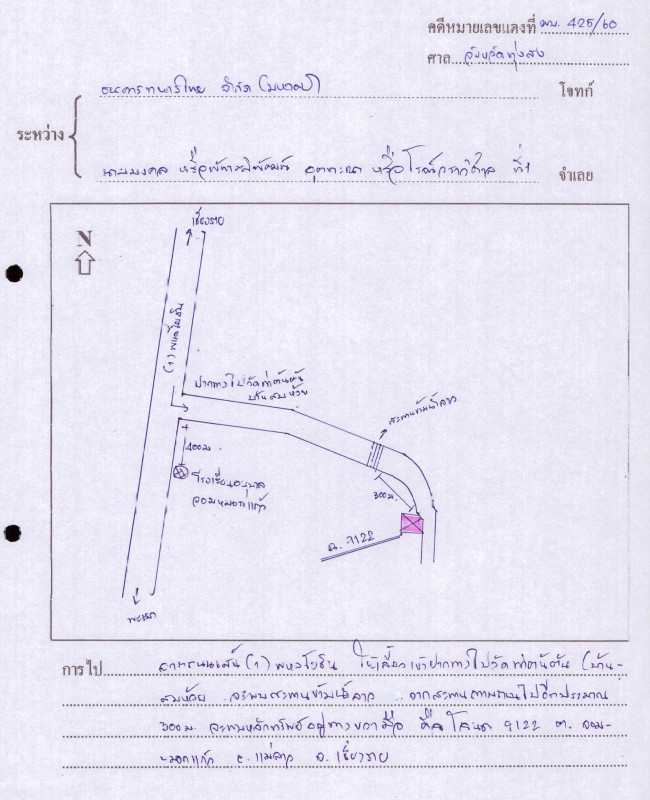 คดีหมายเลขแดงที่ ผบ. 425/60
ศาล จังหวัดทุ่งสง
ธนาคารทหารไทย จำกัด (มหาชน) โจทก์
ระหว่าง
นายมงคล หรือ หรือ ที่ 1 จำเลย
N
เชียงราย
(1) พหลโยธิน
ปากทางไปวัดท่าต้นตัน
บ้านสมห้วย
สะพานข้ามน้ำลาว
400 ม.
โรงเรียนอนุบาล
จอมหมอกแก้ว
300 ม.
ฉ. 9122
พะเยา
การไป จากถนนเส้น (1) พหลโยธิน ให้เลี้ยวเข้าปากทางไปวัดท่าต้นตัน (บ้าน-
สมห้วย จะพบสะพานข้ามน้ำลาว จากสะพานตามถนนไปอีกประมาณ
300 ม. จะพบหลักทรัพย์อยู่ทางขวามือ คือ โฉนด 9122 ต. จอม-
หมอกแก้ว อ. แม่ลาว จ. เชียงราย